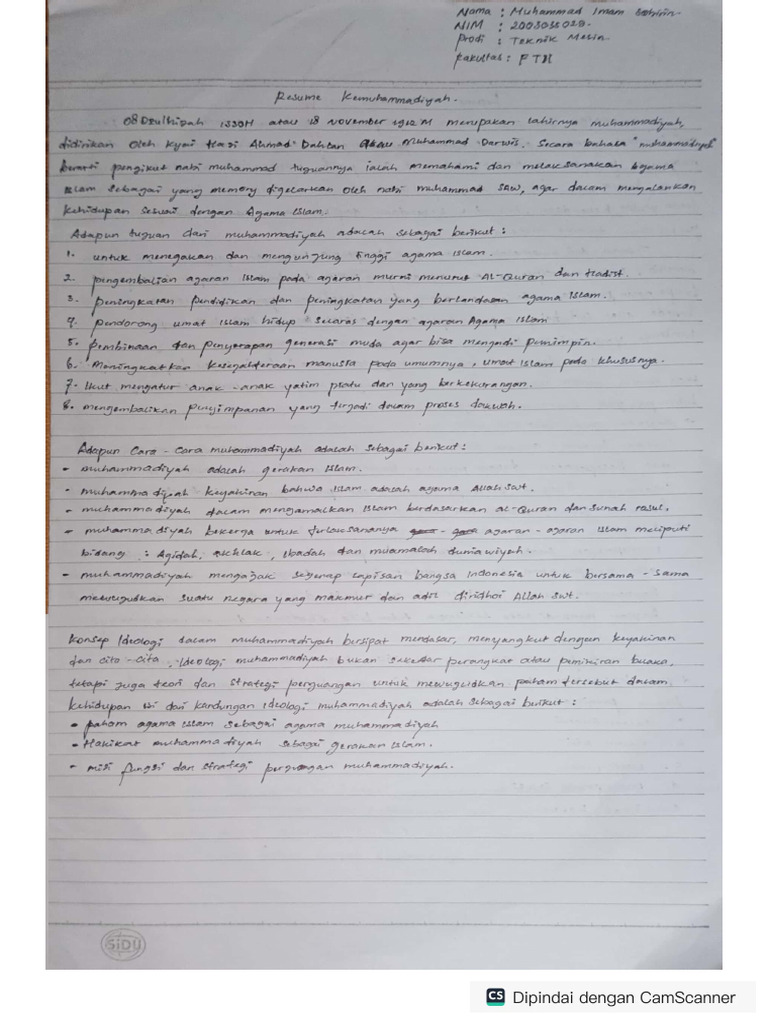 Nama : Muhammad Imam
NIM : 2003035029.
Prodi : Teknik Mesin
Fakultas : FTII
Resume Kemuhammadiyah.
08 Dzulhizah 1330H atau 18 November 1912 M merupakan lahirnya muhammadiyah,
didirikan oleh Kyai Hazi Ahmad Dahlan atau Muhammad Darwis. Secara bahasa "muhammadiyah"
berarti pengikut nabi muhammad tujuannya ialah memahami dan melaksanakan agama
Islam sebagai yang memang digelarkan oleh nabi muhammad SAW, agar dalam mengalankan
kehidupan sesuai dengan Agama Islam.
Adapun tujuan dari muhammadiyah adalah sebagai berikut :
1. untuk menegakan dan mengunjung tinggi agama Islam.
2. pengembalian agaran Islam pada agaran murni menurut Al-Quran dan Hadist.
3. peningkatan pendidikan dan peningkatan yang berlandasan agama Islam.
4. pendorong umat Islam hidup secaras dengan agaran Agama Islam
5. pembinaan dan penyerapan generasi muda agar bisa mengadi pemimpin.
6. Meningkatkan kesejahteraan manusia pada umumnya, umat Islam pada khususnya.
7. Ikut mengatur anak-anak yatim piatu dan yang berkekurangan.
8. mengembalikan penyimpanan yang terjadi dalam proses dakwah.
Adapun Cara-Cara muhammadiyah adalah sebagai berikut :
- muhammadiyah adalah gerakan Islam.
- muhammadiyah keyakinan bahwa Islam adalah agama Allah swt.
- muhammadiyah dalam mengamalkan Islam berdasarkan al-Quran dan sunah rasul.
- muhammadiyah bekerga untuk terlaksananya agaran-agaran Islam meliputi
bidang : Aqidah, akhlak, ibadah dan muamalah duniawiyah.
- muhammadiyah mengajak segenap lapisan bangsa Indonesia untuk bersama-sama
mewugudkan suatu negara yang makmur dan adil diridhoi Allah swt.
Konsep Ideologi dalam muhammadiyah bersipat mendasar, menyangkut dengan keyakinan
dan cita-cita, Ideologi muhammadiyah bukan sukedar perangkat atau pemikiran belaka,
tetapi juga teori dan strategi perguangan untuk mewugudkan paham tersebut dalam
kehidupan isi dari kandungan Ideologi muhammadiyah adalah sebagai berikut :
- paham agama Islam sebagai agama muhammadiyah
- Hakikat muhammadiyah sebagai gerakan Islam.
- misi fungsi dan strategi perguangan muhammadiyah.
SiDU
CS Dipindai dengan CamScanner